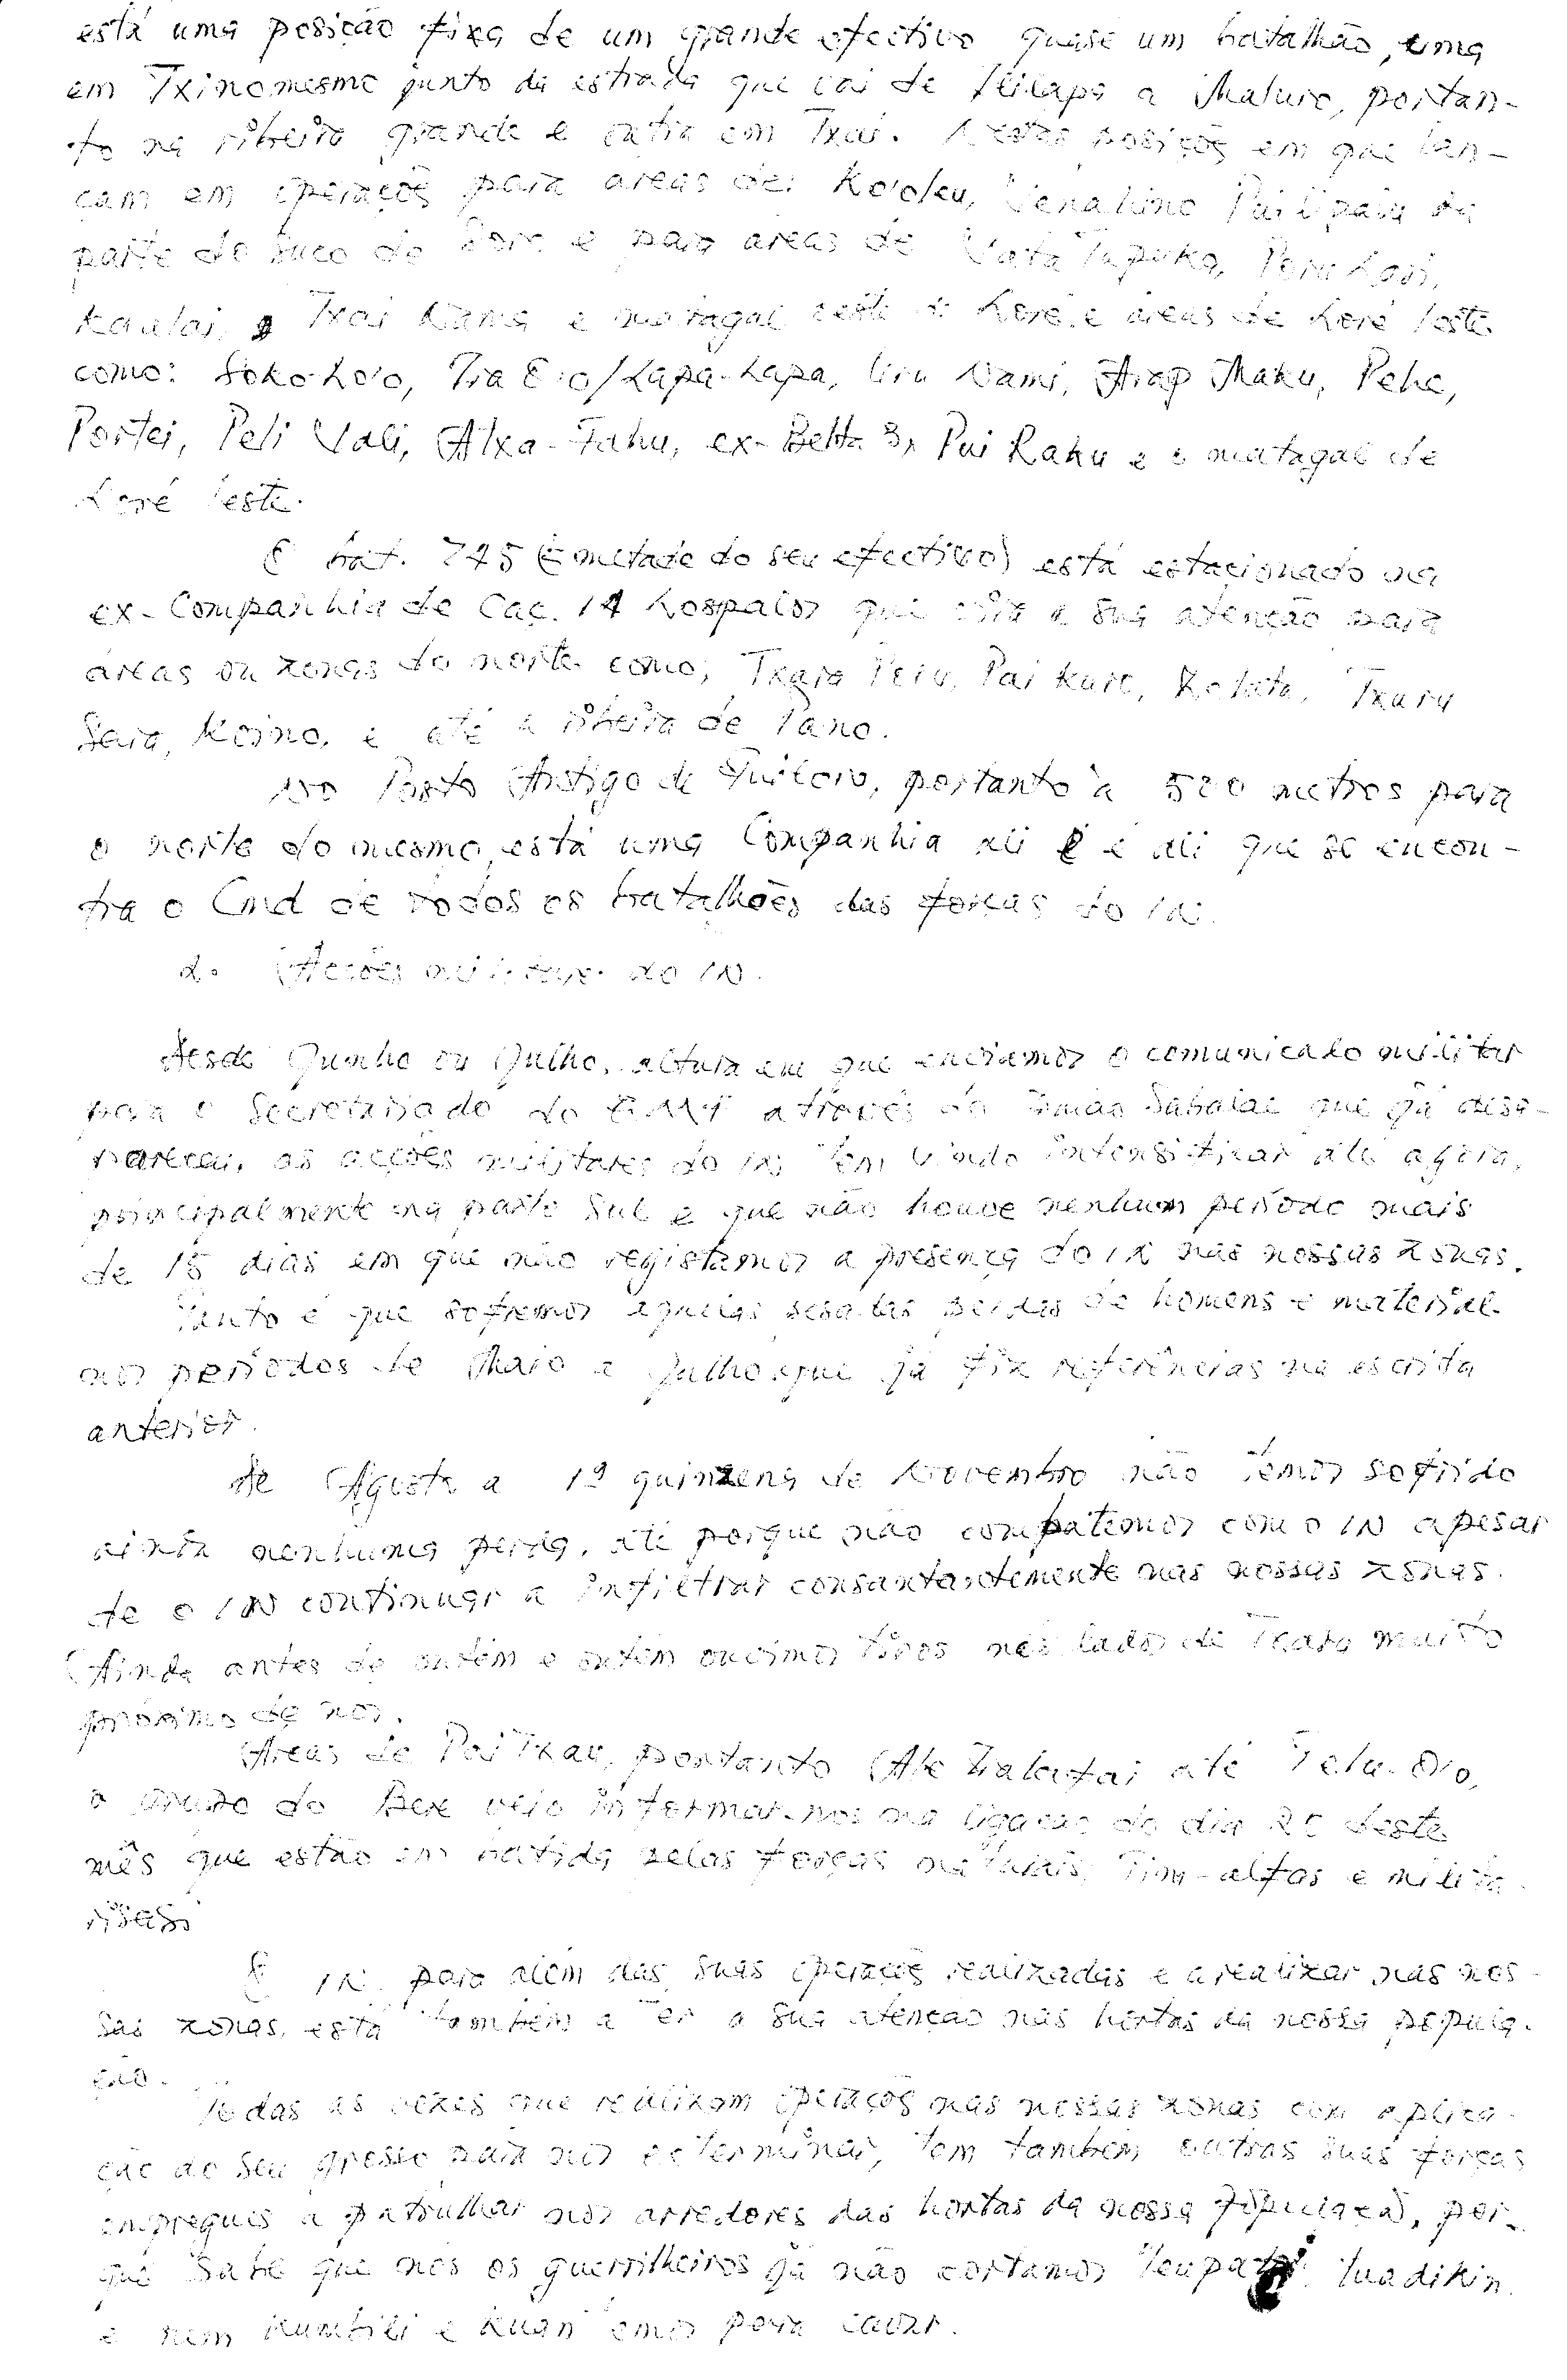 está uma posição fixa de um grande efectivo quase um batalhão, uma
em Txinomesmo junto da estrada que vai de Iliapa a Maluro, portan-
to na ribeira grande e outra em Txai. Nestas posições em que lan-
çam em operações para areas de: Ko'oleu, Venalino Pai Upara da
parte do suco de Loré e para areas de Vata Tapuka,
Kaulai, Txai Nama e matagal oeste de Loré e áreas de Loré leste
como: Soko-Lo'o, Ira O'o/Lapa-Lapa, Uru Nami, Arap Maku, Pehe,
Portei, Peli Vali, Atxa-Fahu, ex-Betta 3, Pui Raku e o matagal de
Loré leste.
O bat. 745 (± metade do seu efectivo) está estacionado na
ex-Companhia de Caç. 14 Lospalos que vira a sua atenção para
áreas ou zonas do norte como, Txara Peru, Pai Kure, Zolata, Txaru
Sara, Koino, e até a ribeira de Pano.
No Posto Antigo de Fuiloro, portanto a 500 metros para
o norte do mesmo está uma Companhia ali e é ali que se encon-
tra o Cmd de todos os batalhões das forças do IN.
d. Acções militares do IN.
Desde Junho ou Julho, altura em que enviamos o comunicado militar
para o Secretariado do através do Irmão Sabalae que já desa-
pareceu, as acções militares do IN tem vindo intensificar até agora,
principalmente na parte Sul e que não houve nenhum periodo mais
de 15 dias em que não registamos a presença do IN nas nossas zonas.
Tanto é que sofremos aquelas pesadas perdas de homens e material
nos periodos de Maio a Julho, que já fiz referências na escrita
anterior.
De Agosto a 1ª quinzena de Novembro não temos sofrido
ainda nenhuma perda, até porque não compatemos com o IN apesar
de o IN continuar a infiltrar consantantemente nas nossas zonas.
Ainda antes de ontem e ontem ouvimos tiros nos lados de Txara muito
próximo de nos.
Areas de Pai Txau, portanto até Telu-O'o,
o grupo do Bere veio informar-nos na ligação do dia 20 deste
mês que estão em batida pelas forças naturais, Tim-alfas e milita-
risas.
O IN para além das suas operações realizadas e a realizar nas nos-
sas zonas, está também a ter a sua atenção nas hortas da nossa popula-
ção.
Todas as vezes que realizam operações nas nossas zonas com aplica-
ção do seu grosso para nos exterminar, tem também outras suas forças
empregues a patrulhar nos arredores das hortas da nossa população, por-
que sabe que nós os guerrilheiros já não cortamos tuadikin
e nem kumbili e kuan temos para cavar.